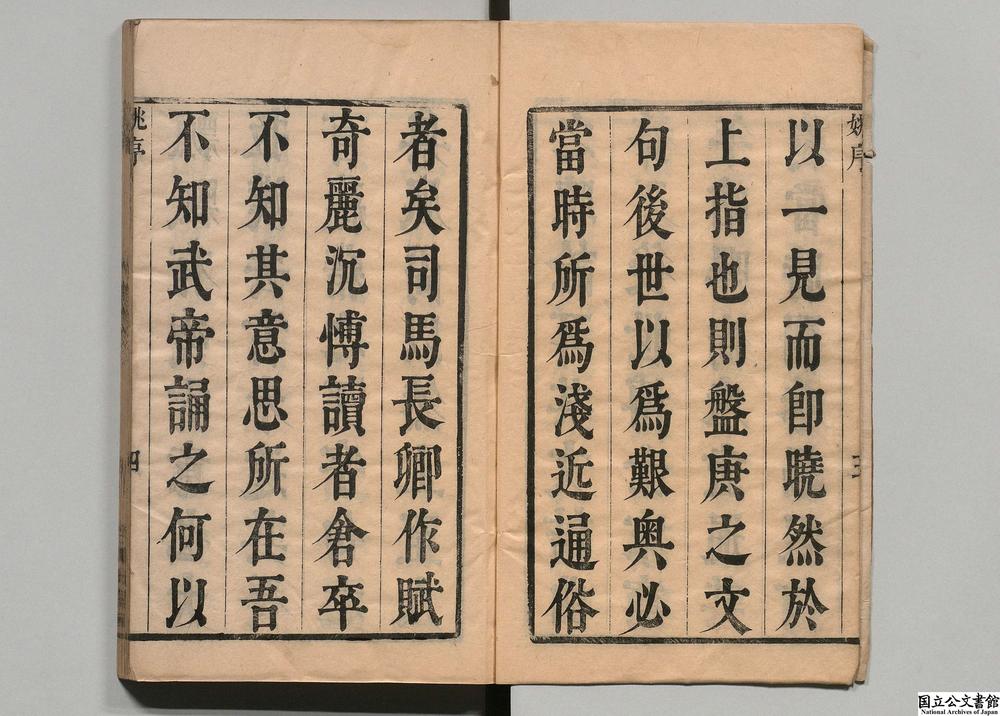 姚序
以一見而卽曉然於
上指也則盤庚之文
句後世以爲艱奧必
當時所爲淺近通俗
者矣司馬長卿作賦
奇麗沉博讀者倉卒
不知其意思所在吾
不知武帝誦之何以
姚序
四
国立公文書館
National Archives of Japan